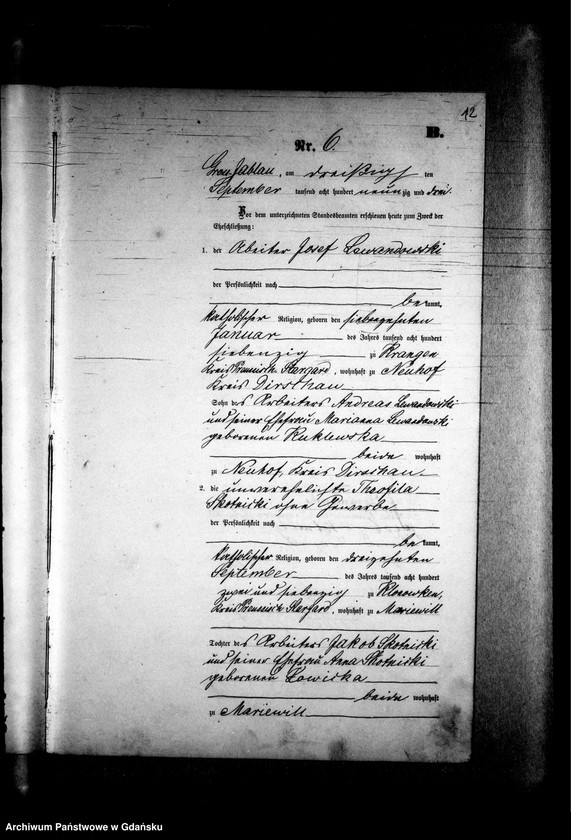 12
B.
Nr. 6.
Gross Jablau, am dreißigsten
September tausend acht hundert neunzig und drei.
Vor dem unterzeichneten Standesbeamten erschienen heute zum Zweck der
Eheschließung:
1. der Arbeiter Josef Lewandowski
der Persönlichkeit nach
bekannt,
katholischer Religion, geboren den siebzehnten
Januar des Jahres tausend acht hundert
siebenzig zu Krangen
Kreis Preussisch Stargard, wohnhaft zu Neuhof
Kreis Dirschau
Sohn des Arbeiters Andreas Lewandowski
und seiner Ehefrau Marianna Lewandowski
geborenen Kuklewska
beide wohnhaft
zu Neuhof, Kreis Dirschau
2. die unverehelichte Theofila
Skotnicki ohne Gewerbe
der Persönlichkeit nach
bekannt,
katholischer Religion, geboren den dreizehnten
September des Jahres tausend acht hundert
zwei und siebenzig zu Klonowken,
Kreis Preussisch Stargard, wohnhaft zu Mariewill
Tochter des Arbeiters Jakob Skotnicki
und seiner Ehefrau Anna Skotnicki
geborenen
beide wohnhaft
zu Mariewill
Archiwum Państwowe w Gdańsku